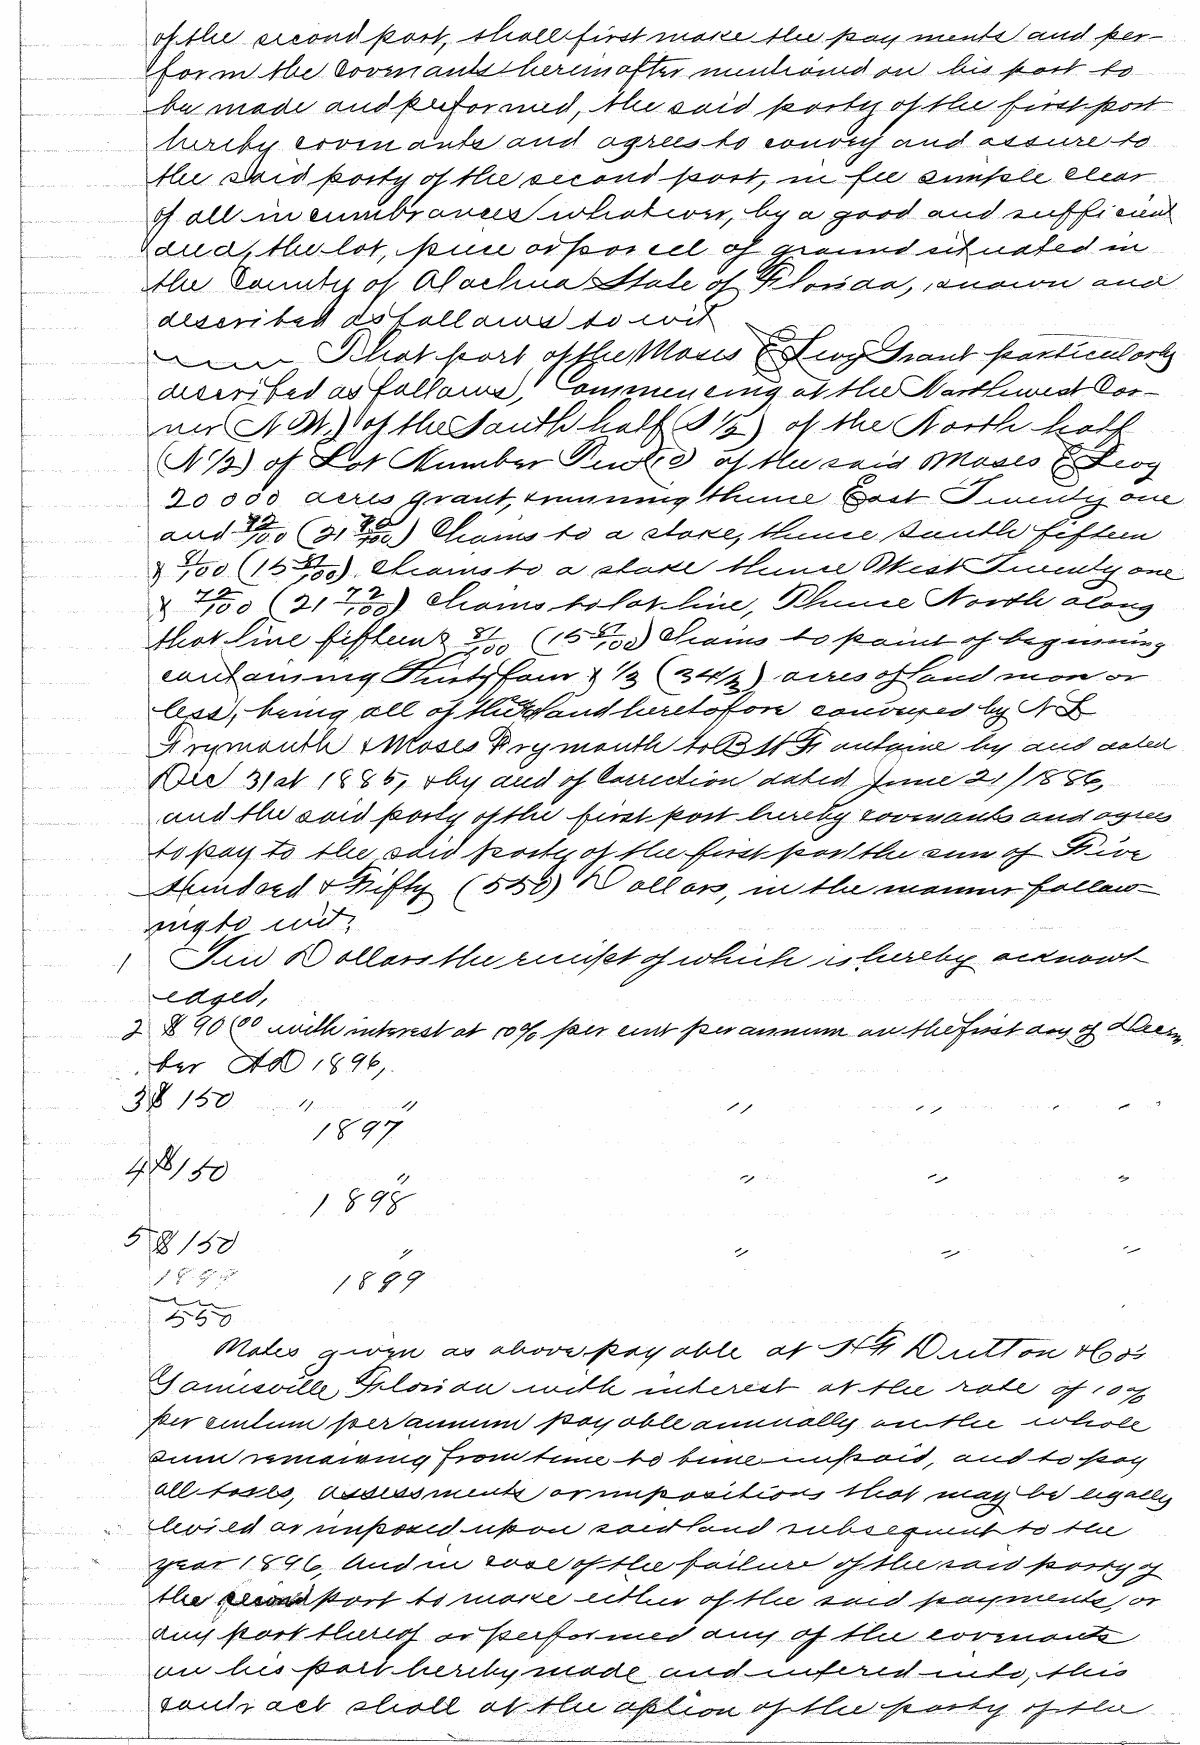 of the second part, shall first make the payments and per-
form the covenants hereinafter mentioned on his part to
be made and performed, the said party of the first part
hereby covenants and agrees to convey and assure to
the said party of the second part, in fee simple clear
of all incumbrances whatever, by a good and sufficient
deed, the lot, piece or parcel of ground situated in
the County of Alachua State of Florida, known and
described as follows to wit
That part of the Moses E Levy Grant particularly
described as follows, Commencing at the Northwest Cor-
ner (N.W.) of the South half (S 1/2) of the North half
(N 1/2) of Lot Number of the said Moses E Levy
20000 acres grant, running thence East Twenty one
and 72/100 (21 72/100) Chains to a stake, thence South fifteen
& 81/100 (15 81/100) chains to a stake thence West Twenty one
& 72/100 (21 72/100) Chains to lot line, Thence North along
that line fifteen & 81/100 (15 81/100) Chains to point of beginning
containing Thirty four & 1/3 (34 1/3) acres of land more or
less, being all of the land heretofore conveyed by N L
Prymouth & Moses Prymouth to B H Fontaine by and dated
Dec 31st 1885, & by deed of Correction dated June 21/1886,
and the said party of the first part hereby covenants and agrees
to pay to the said party of the first part the sum of Five
Hundred & Fifty (550) Dollars, in the manner follow-
ing to wit;
1 Ten Dollars the receipt of which is hereby acknowl
edged,
2 $ 90 00 with interest at 10% per cent per annum on the first day of Decem
ber AD 1896,
3 $ 150 " " " " " "
1897
4 $ 150 " " " "
1898
5 $ 150 " " " "
1899 1899
550
Notes given as above payable at H F Dutton & Co's
Gainesville Florida with interest at the rate of 10%
per centum per annum payable annually on the whole
sum remaining from time to time unpaid, and to pay
all taxes, assessments or impositions that may be legally
levied or imposed upon said land subsequent to the
year 1896, And in case of the failure of the said party of
the second part to make either of the said payments, or
any part thereof or performed any of the covenants
on his part hereby made and entered into, this
contract shall at the option of the party of the